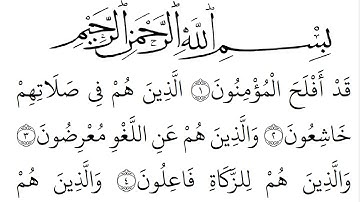 بِسْمِ اللَّهِ الرَّحْمَنِ الرَّحِيمِ
قَدْ أَفْلَحَ الْمُؤْمِنُونَ ۝١ الَّذِينَ هُمْ فِي صَلَاتِهِمْ
خَاشِعُونَ ۝٢ وَالَّذِينَ هُمْ عَنِ اللَّغْوِ مُعْرِضُونَ ۝٣
وَالَّذِينَ هُمْ لِلزَّكَاةِ فَاعِلُونَ ۝٤ وَالَّذِينَ هُمْ